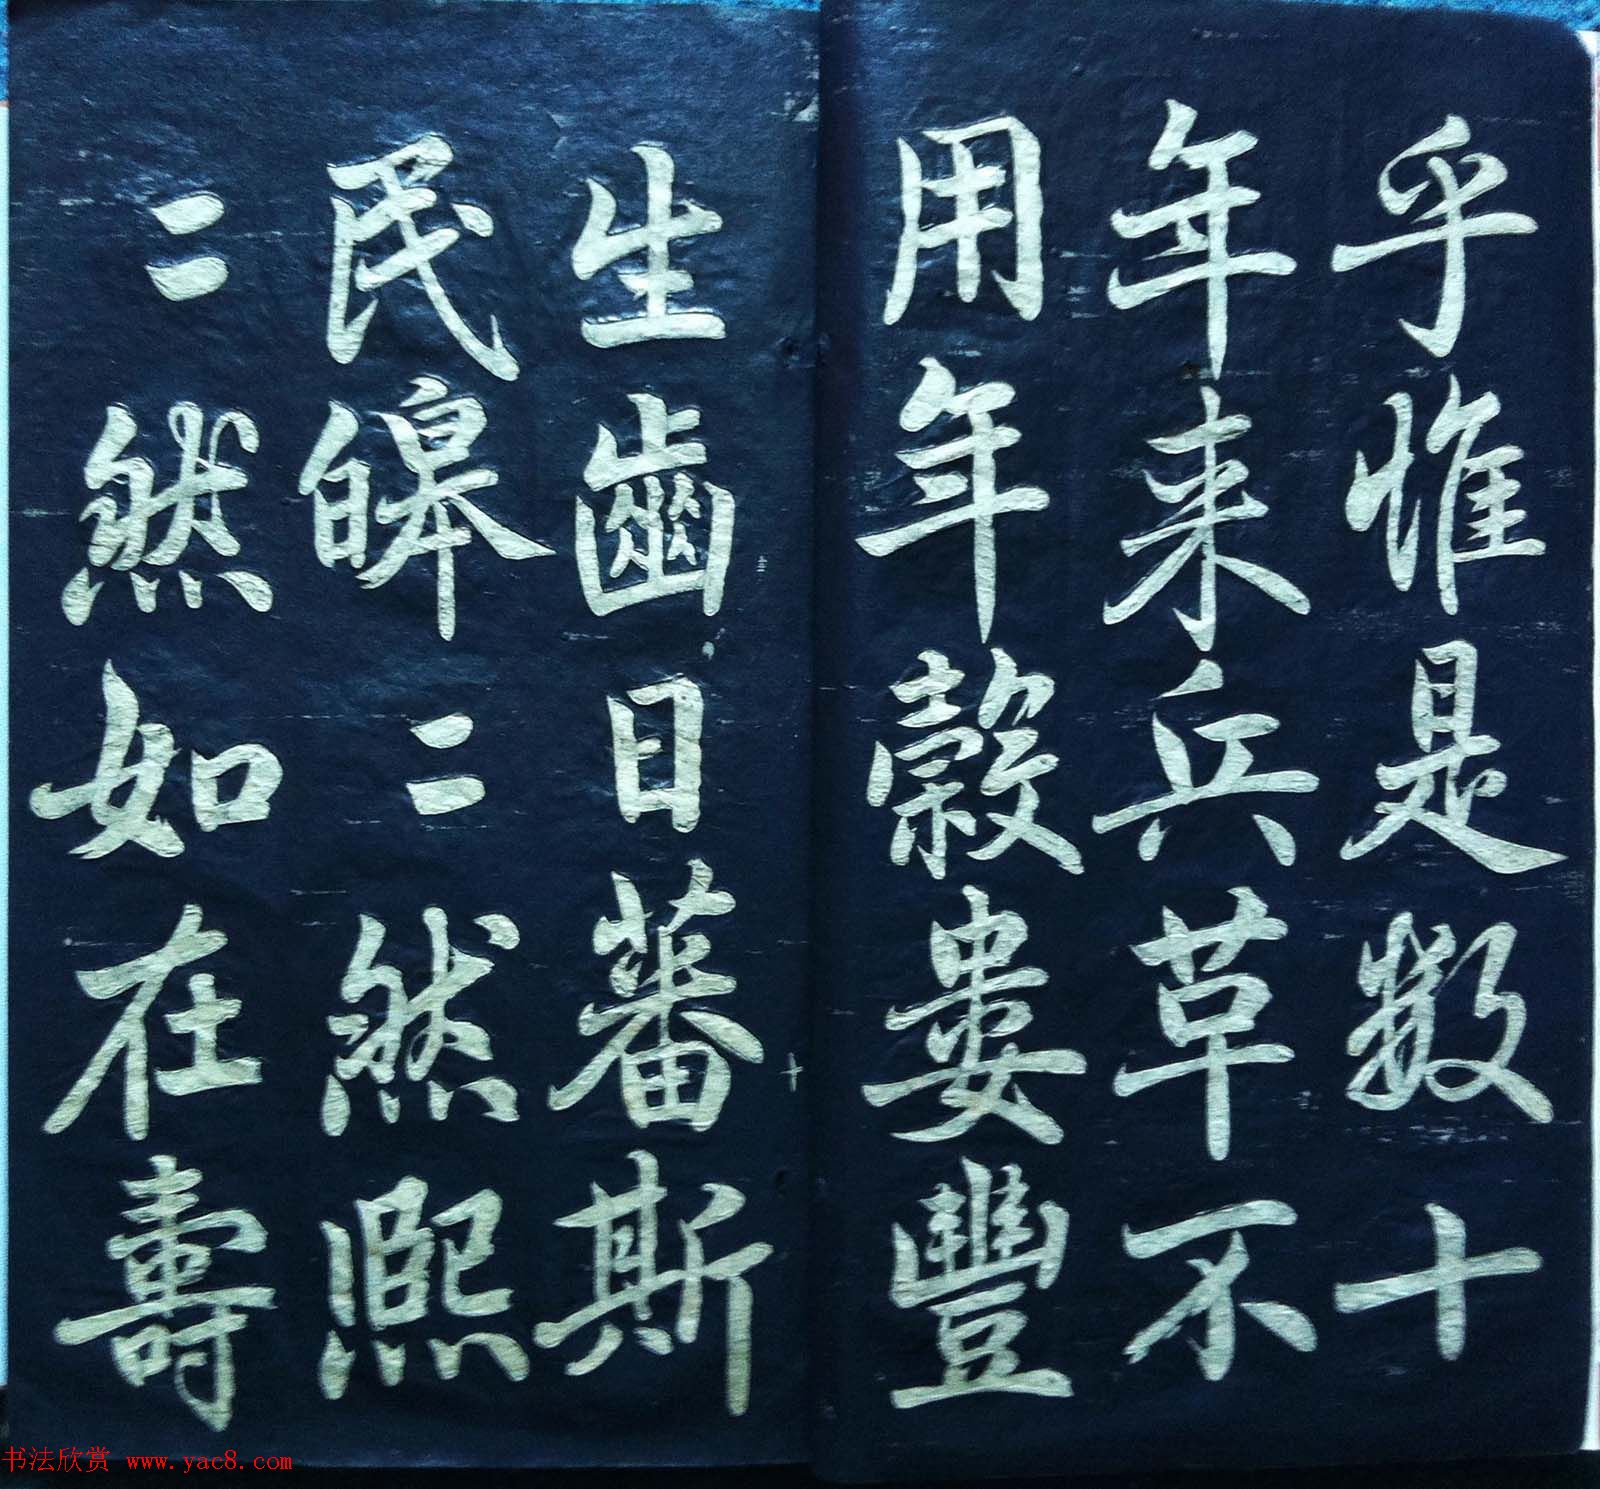 乎惟是數十
年来兵革不
用年穀婁豐
生齒日蕃斯
民皞二然熙
二然如在壽
书法欣赏 www.yac8.com